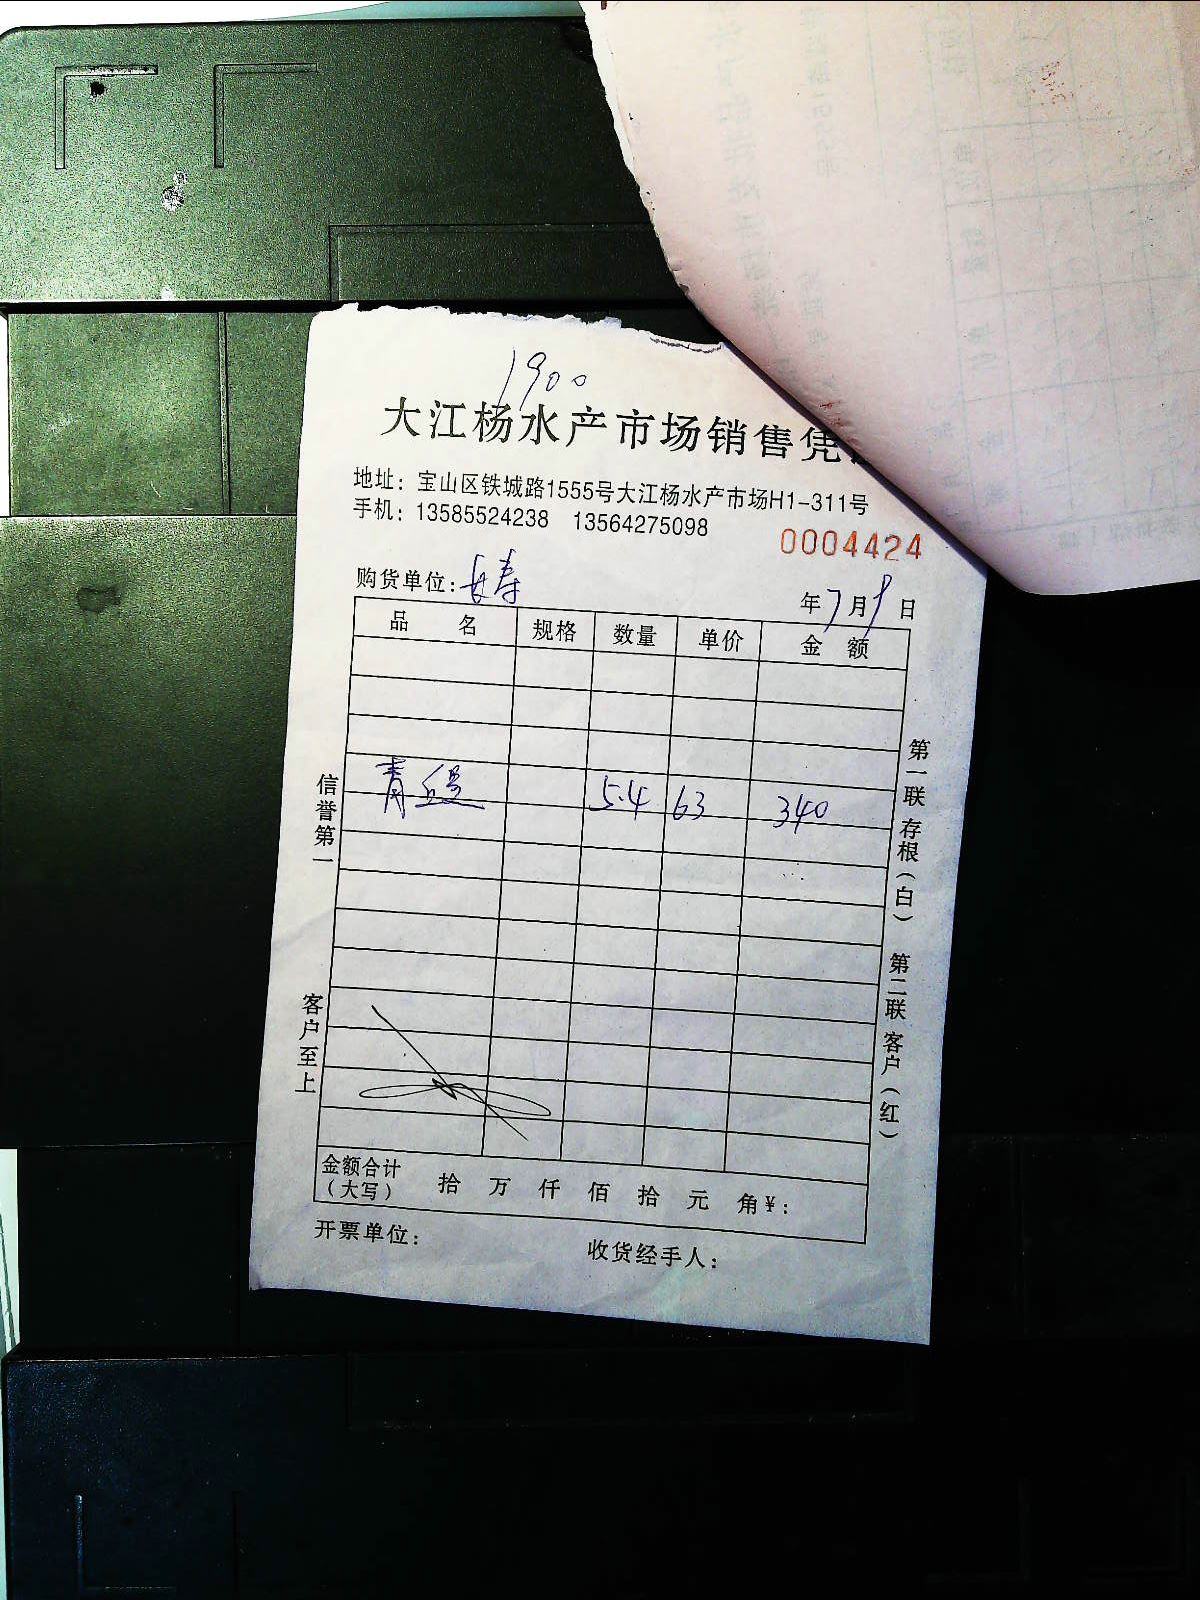 1900
大江杨水产市场销售凭
地址：宝山区铁城路1555号大江杨水产市场H1-311号
手机：13585524238 13564275098
0004424
购货单位：长寿
年7月9日
品 名 规格 数量 单价 金 额
青 5.4 63 340
信誉第一
客户至上
第一联 存根（白） 第二联 客户（红）
金额合计
（大写） 拾 万 仟 佰 拾 元 角¥：
开票单位： 收货经手人：